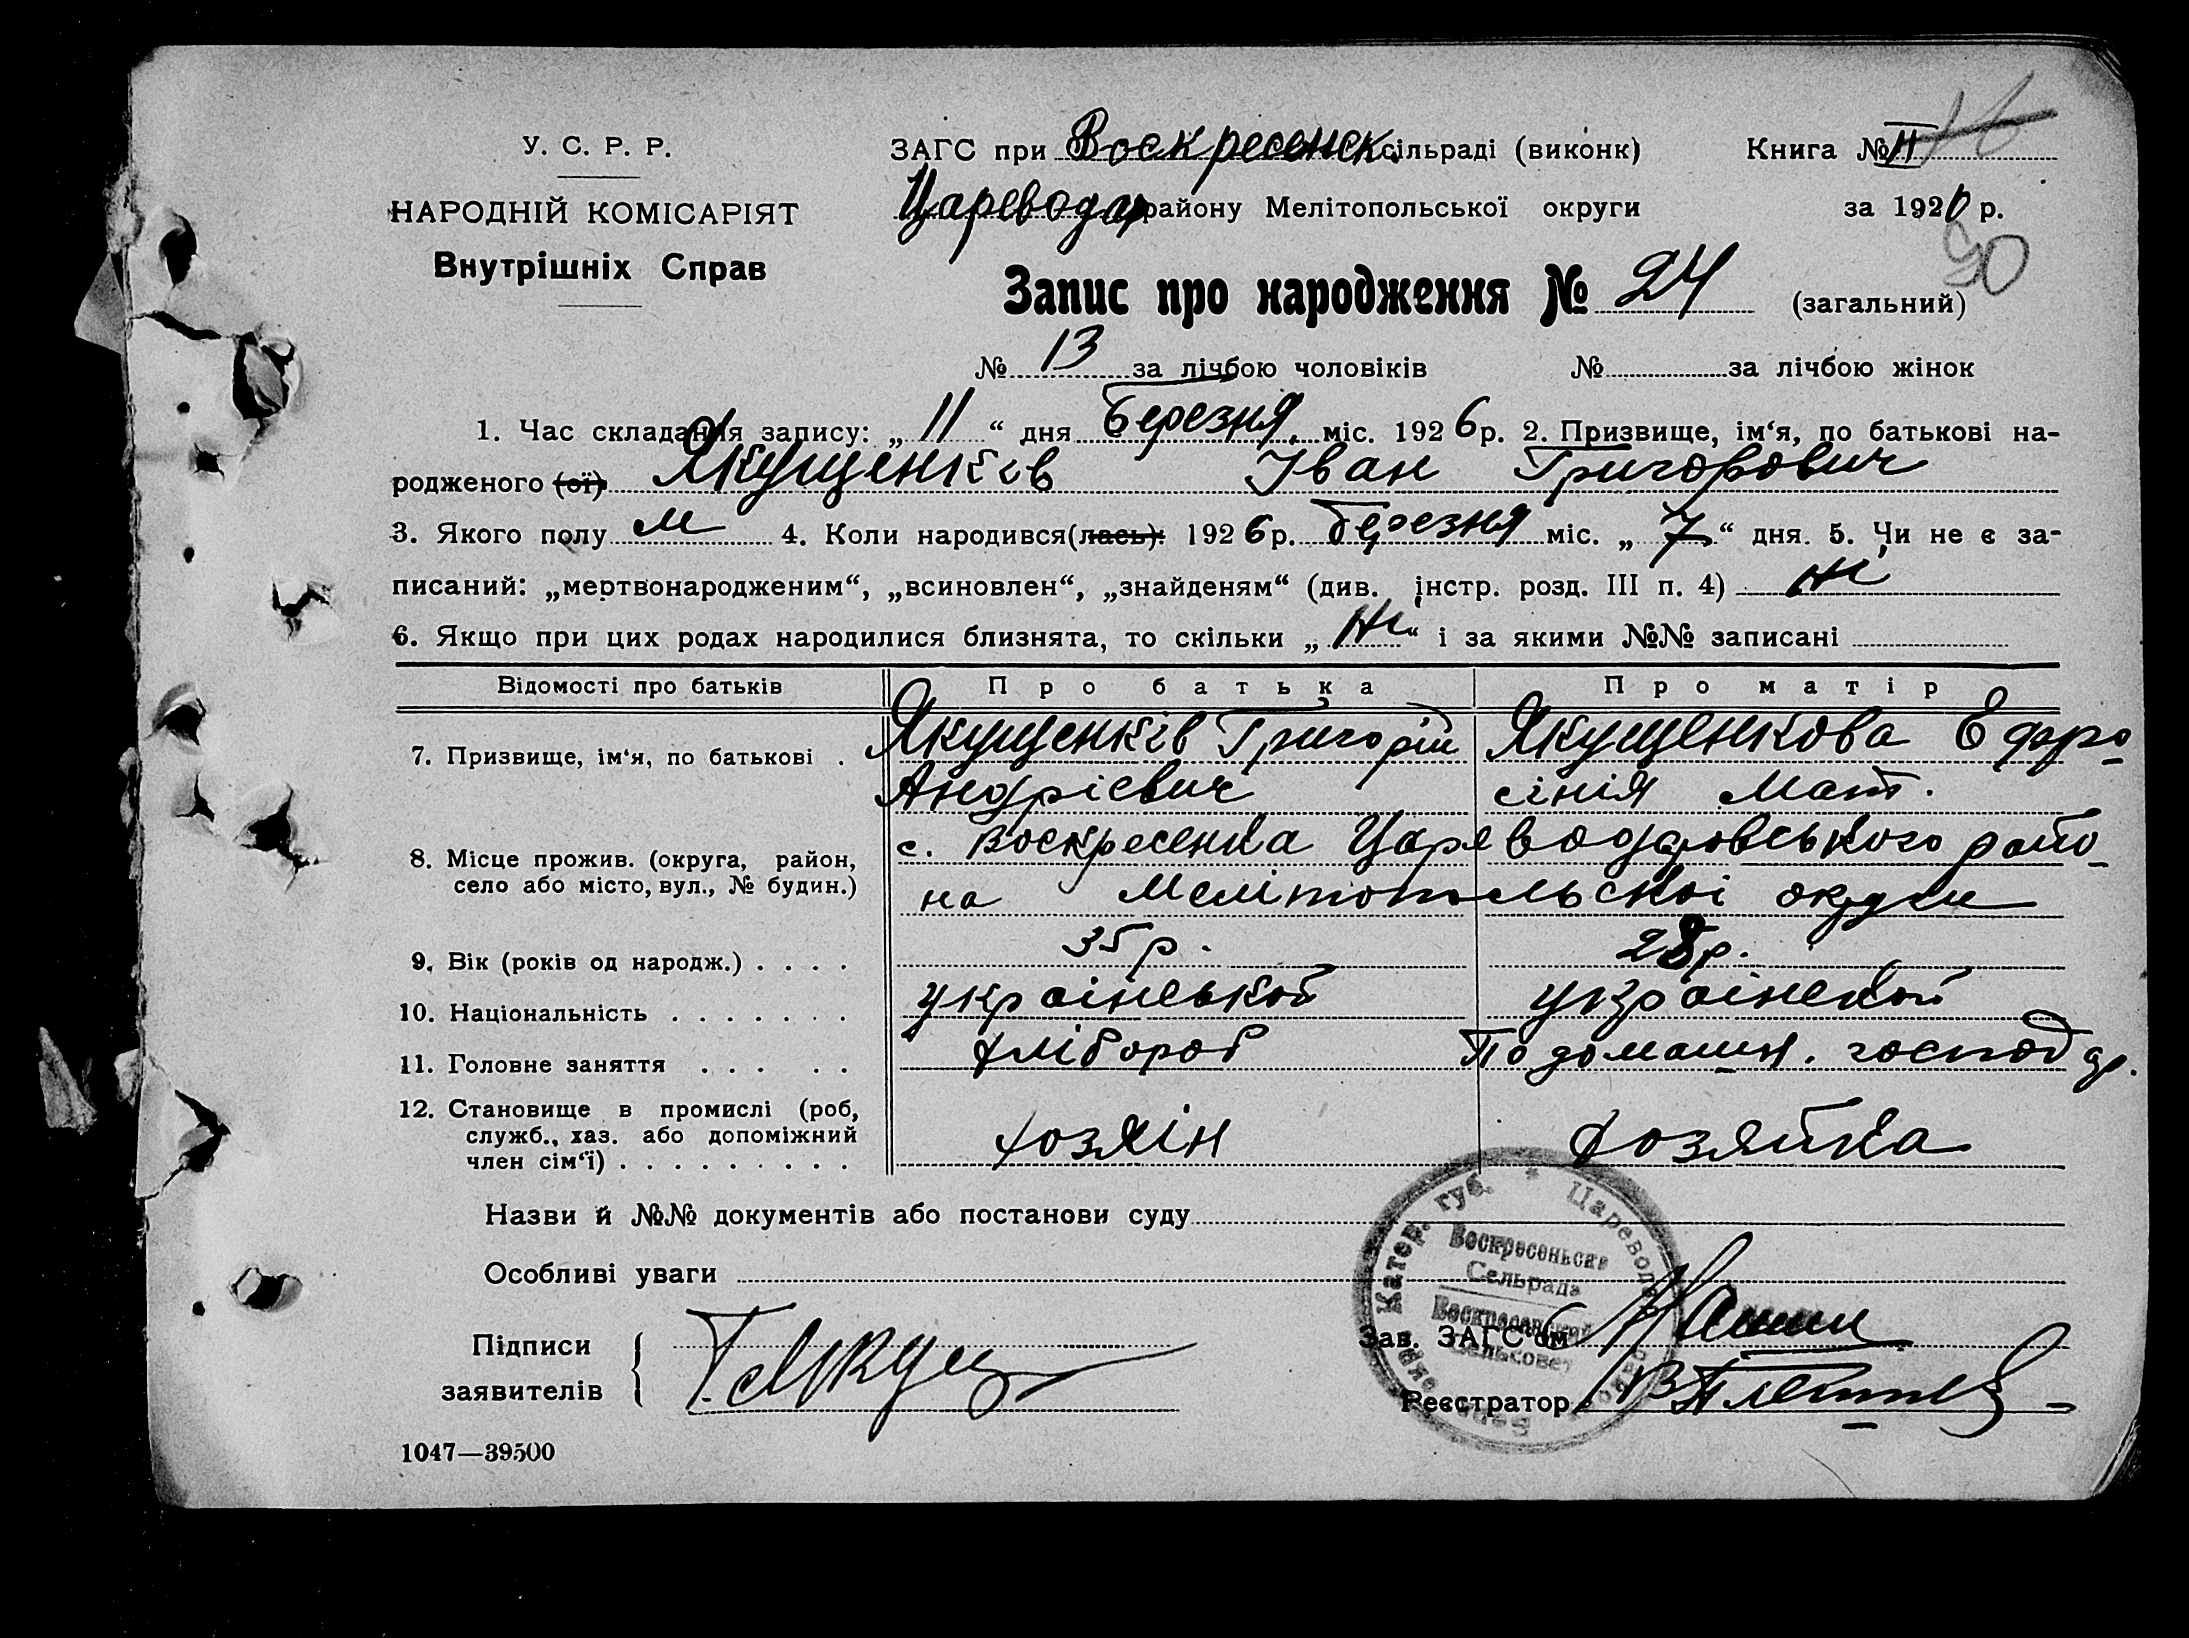 У. С. Р. Р.
НАРОДНІЙ КОМІСАРІЯТ
Внутрішніх Справ
ЗАГС при Воскресенск. сільраді (виконк) Книга № II
Цареводар району Мелітопольської округи за 1926 р.
50
Запис про народження № 24 (загальний)
№ 13 за лічбою чоловіків № за лічбою жінок
1. Час складання запису: „ 11 “ дня Березня міс. 1926 р. 2. Призвище, ім‘я, по батькові на-
родженого (ої) Якущенків Іван Григорович
3. Якого полу м 4. Коли народився(лась): 1926 р. березня міс. „ 7 “ дня. 5. Чи не є за-
писаний: „мертвонародженим“, „всиновлен“, „знайденям“ (див. інстр. розд. III п. 4) ні
6. Якщо при цих родах народилися близнята, то скільки „ ні “ і за якими №№ записані
Відомості про батьків Про батька Про матір
7. Призвище, ім‘я, по батькові . Якущенків Григорій Якущенкова Ефро-
Андрієвич сінія Мат.
8. Місце прожив. (округа, район, с. Воскресенка Цареводаровського райо-
село або місто, вул., № будин.) на Мелітопольскоі округи
9. Вік (років од народж.) . . . . 35 р. 28 р.
10. Національність . . . . . . . українськой украінской
11. Головне заняття . . . . . хлібороб По домашн. господар.
12. Становище в промислі (роб,
служб., хаз. або допоміжний хозяін хозяйка
член сім‘ї) . . . . . . . . .
Назви й №№ документів або постанови суду
Особливі уваги
Катер. губ. * Цареводар
Воскресеньска
Сельрада
Воскресенский
сельсовет
Підписи
заявителів Г. Якущ
Зав. ЗАГС‘ом
Реєстратор
1047—39500